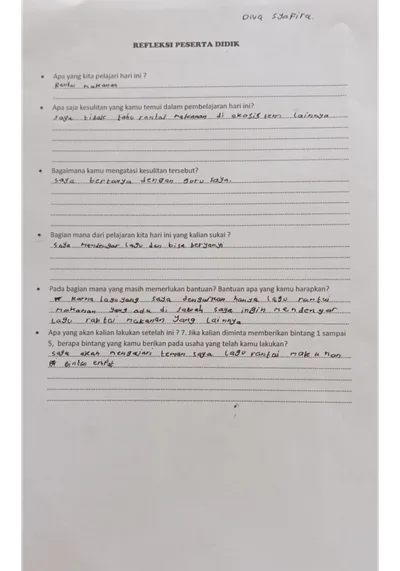 Diva Syafira.
REFLEKSI PESERTA DIDIK
• Apa yang kita pelajari hari ini ?
Rantai makanan
• Apa saja kesulitan yang kamu temui dalam pembelajaran hari ini?
saya tidak tahu rantai makanan di ekosistem lainnya
• Bagaimana kamu mengatasi kesulitan tersebut?
saya bertanya dengan guru saya.
• Bagian mana dari pelajaran kita hari ini yang kalian sukai ?
saya mendengar lagu dan bisa bernyanyi
• Pada bagian mana yang masih memerlukan bantuan? Bantuan apa yang kamu harapkan?
karna lagu yang saya dengarkan hanya lagu rantai
makanan yang ada di sawah saya ingin mendengar
lagu rantai makanan yang lainnya
• Apa yang akan kalian lakukan setelah ini ? 7. Jika kalian diminta memberikan bintang 1 sampai
5, berapa bintang yang kamu berikan pada usaha yang telah kamu lakukan?
saya akan mengajari teman saya lagu rantai makanan
bintang empat